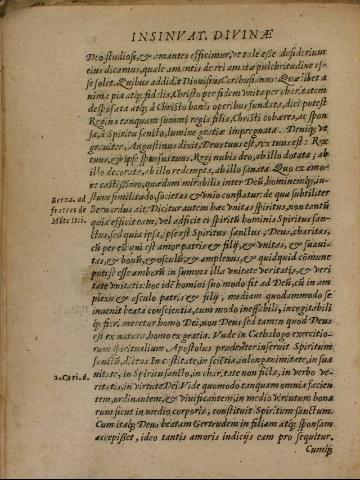 INSINVAT. DIVINÆ
Deo studiosi, & amantes efficimur, vt tale esse desiderium
eius dicamus, quale amantis de rei amatæ pulchritudine es-
se solet. Quibus addidit Dionisius Carthusianus: Quælibet a
nima pia atq; fidelis, Christo per fidem vnita per charitatem
desposata atq; à Christo bonis operibus fundata, dici potest
Regina tanquam summi regis filia, Christi cohæres, ac spon
sa, à Spiritu sancto, lumine gratiæ impregnata. Deniq; vt
grauiter Augustinus dixit, Deus tuus est, rex tuus est: Rex
tuus, & ipse sponsus tuus. Regi nubis deo, ab illo dotata; ab
illo decorata, ab illo redempta, ab illo sanata. Quo ex amo-
re castissimo, quædam mirabilis inter Deũ, hominemq; iu-
Berna. ad
fratres de
Mõte Dei.
stum similitudo, societas & vnio conflatur: de qua subtiliter
Bernardus ait: Dicitur autem hæc vnitas spiritus, non tantũ
quia efficit eam, vel adficit ei spiritũ hominis Spiritus san-
ctus, sed quia ipsa, ipse est Spiritus sanctus, Deus, charitas,
cũ per eũ qui est amor patris & filij, & vnitas, & suaui-
tas, & bonũ, & osculũ, & amplexus, & quidquid cõmune
potest esse amborũ in summa illa vnitate veritatis, & veri
tate vnitatis: hoc idẽ homini suo modo fit ad Deũ, cũ in am
plexu & osculo patris & filij, mediam quodammodo se
inuenit beata conscientia, cum modo ineffabili, incogitabili
q; fieri meretur homo Dei, non Deus sed tamen quod Deus
est ex natura, homo ex gratia. Vnde in Cathalogo exercitio-
rum spiritualium Apostolus prudenter inseruit Spiritum
2. Cori. 6.
sanctũ, dicens In castitate, in sciẽtia, in longanimitate, in sua
uitate, in Spiritu sancto, in charitate non ficta, in verbo ve-
ritatis, in virtute Dei. Vide quomodo tanquam omnia facien
tem, ordinantem, & viuificantem, in medio virtutum bona
rum sicut in medio corporis, constituit Spiritum sanctum.
Cum itaq; Deus beatam Gertrudem in filiam atq; sponsam
accepisset, ideo tantis amoris indicijs eam pro sequitur.
Cumq;